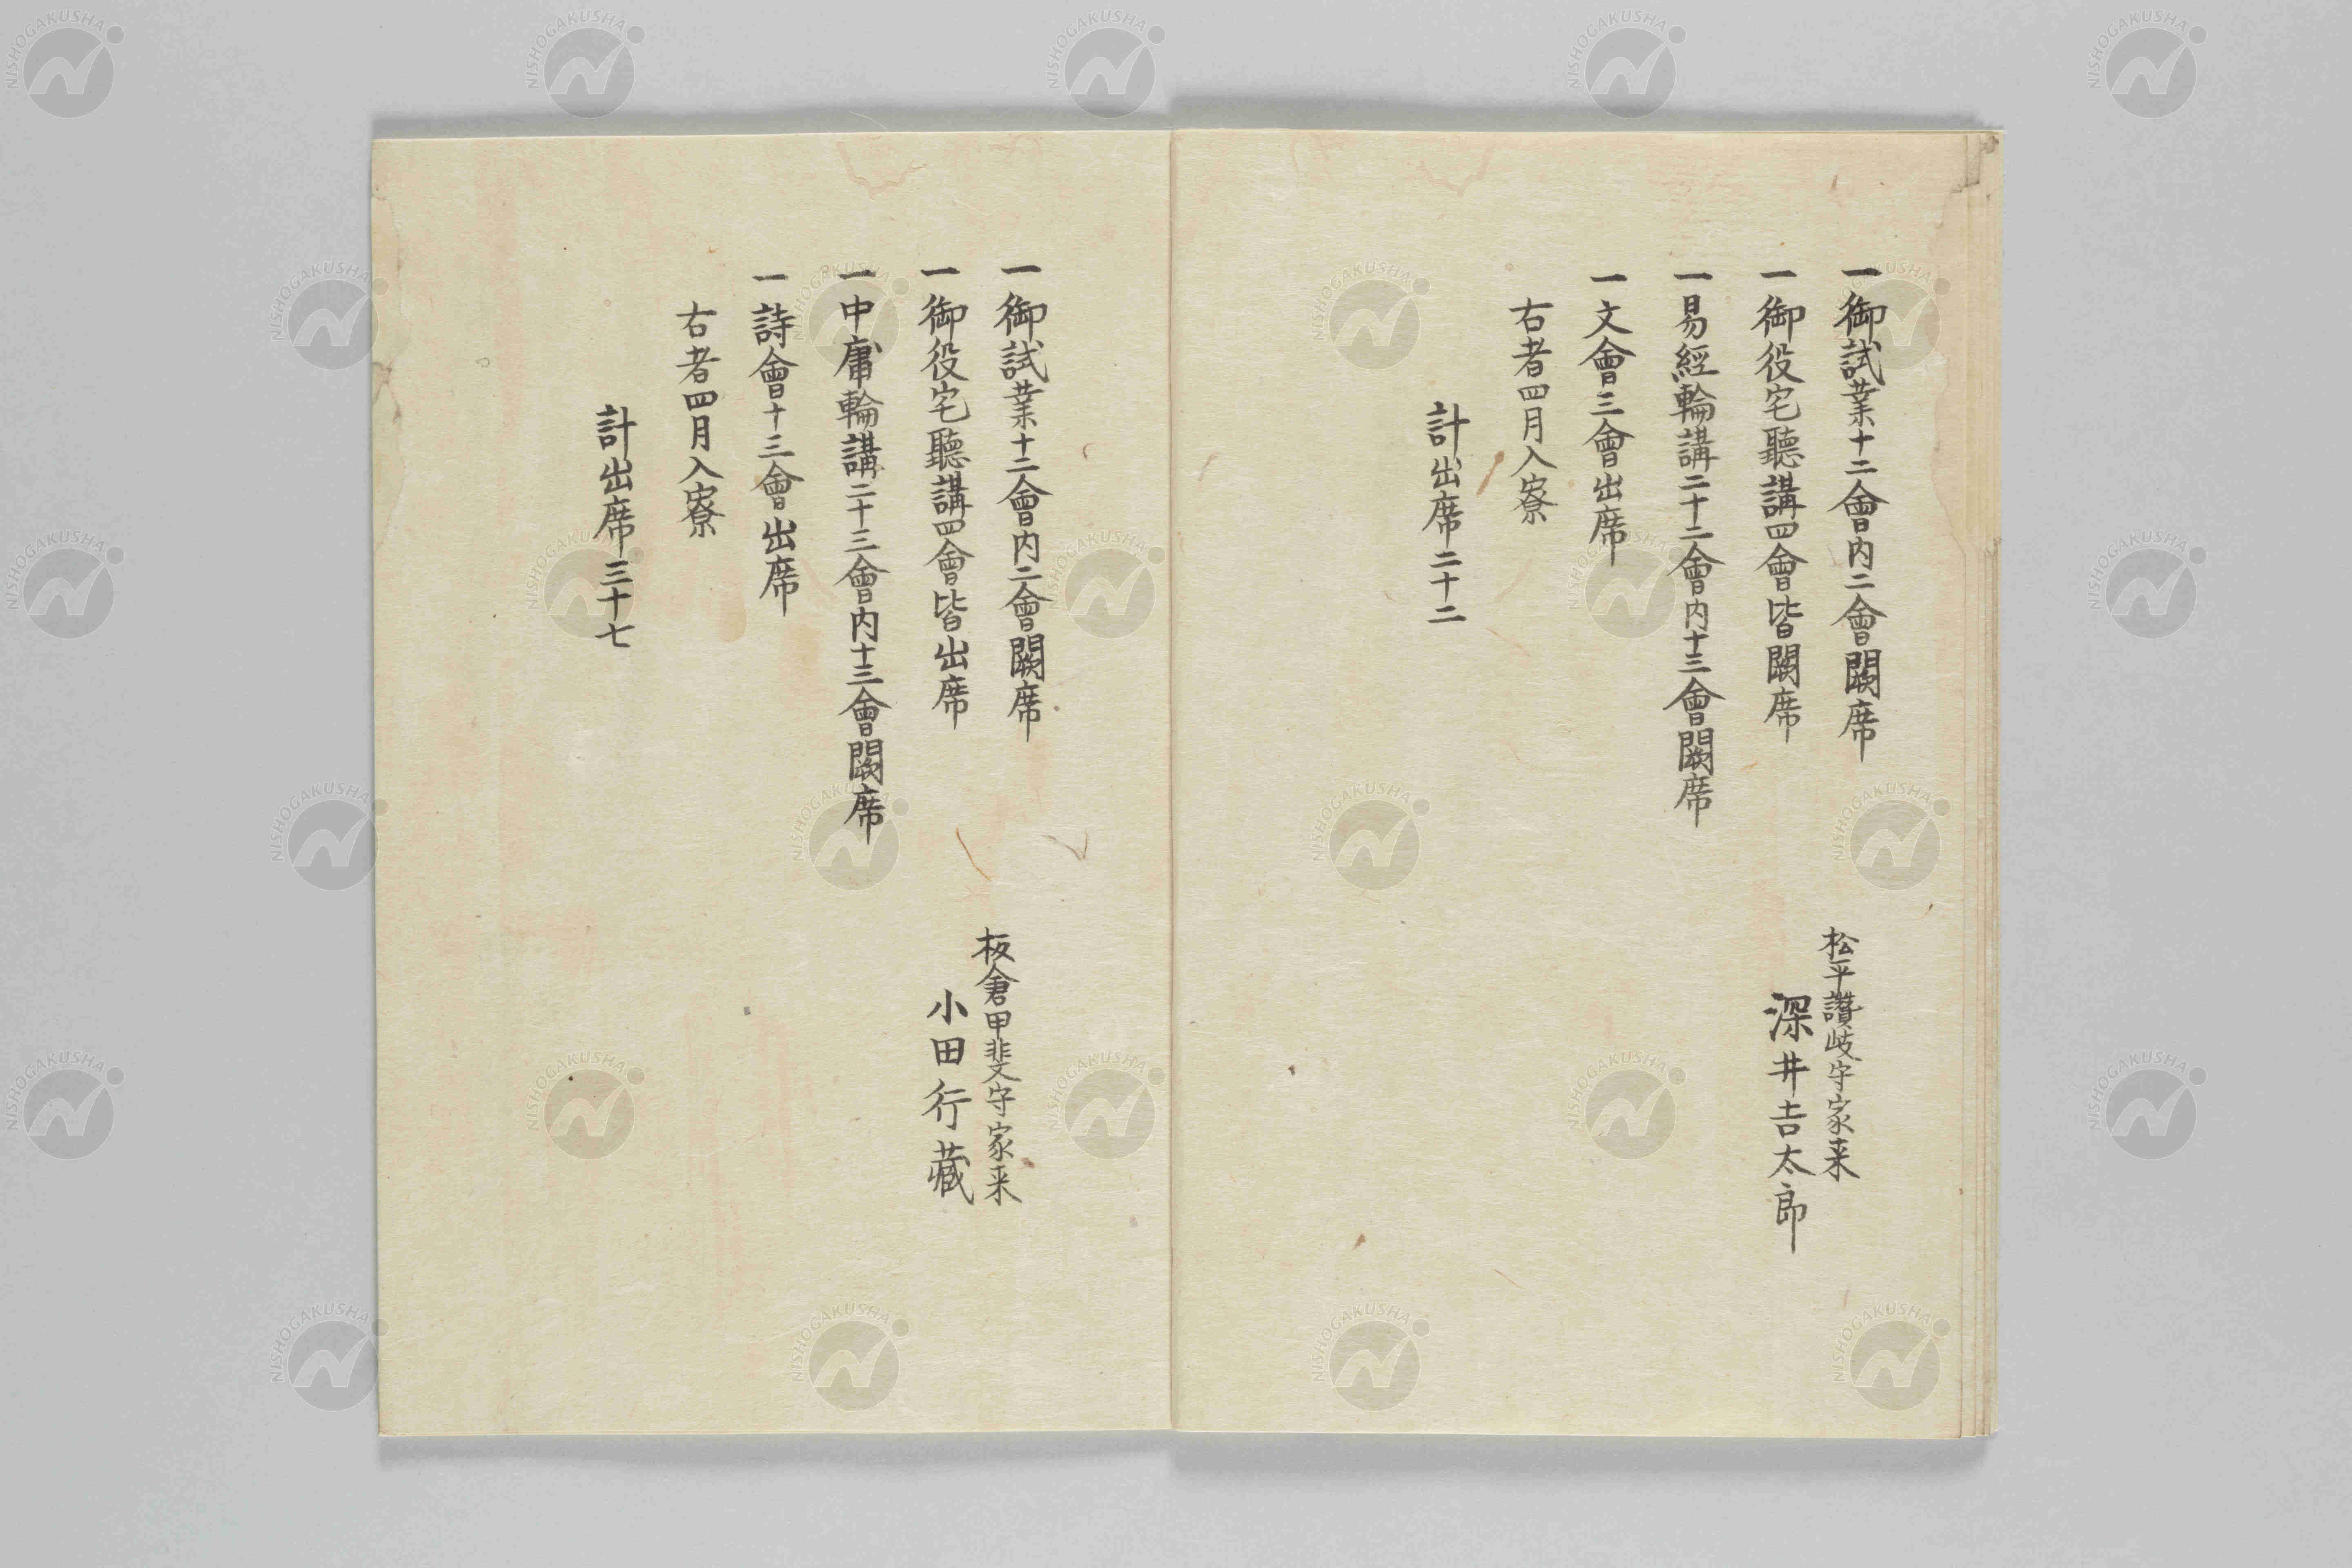 松平讚岐守家来
深井吉太郎
一御試業十二會内二會闕席
一御役宅聽講四會皆闕席
一易經輪講二十二會内十三會闕席
一文會三會出席
右者四月入寮
計出席二十二
板倉甲斐守家来
小田行藏
一御試業十二會内二會闕席
一御役宅聽講四會皆出席
一中庸輪講二十三會内十三會闕席
一詩會十三會出席
右者四月入寮
計出席三十七
NISHOGAKUSHA